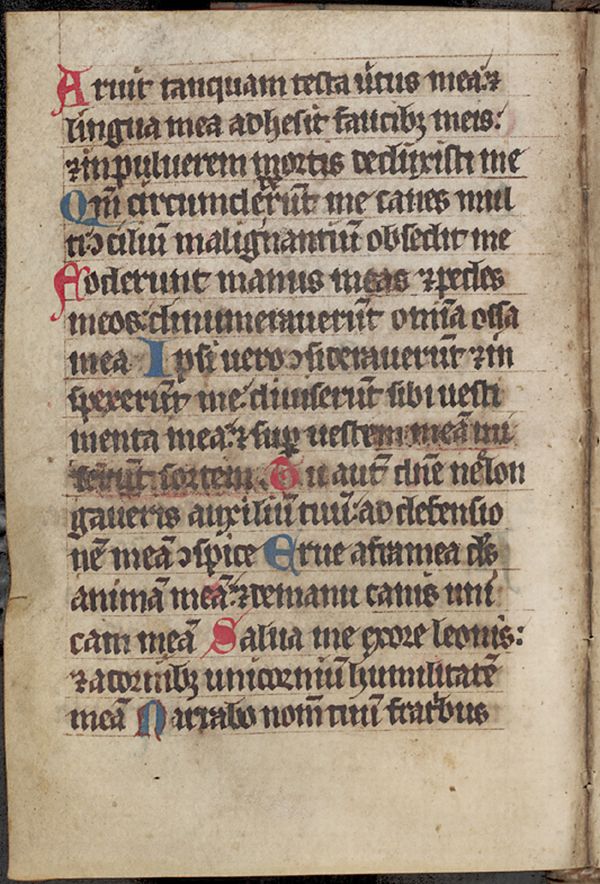 Aruit tanquam testa ũtus mea: ⁊
lingua mea adhesit faucibꝫ meis:
⁊ in puluerem mortis deduxisti me
Qm̃ circumderũt me canes mul
ti ↄciliũ malignantiũ obsedit me
Foderunt manus meas ⁊ pedes
meos: dinumerauerũt om̃ia ossa
mea Ipsi uero ↄsiderauerũt ⁊ in
spexerũt me: diuiserũt sibi uesti
menta mea: ⁊ suꝑ uestem meã mi
serũt sortem. Tu aut̃ dñe ne elon
gaueris auxiliũ tuũ: ad defensio
nẽ meã ↄspice Erue a framea ds̃
animã meã: ⁊ de manu canis uni
cam meã Salua me ex ore leonis:
⁊ a cornibꝫ unicorniũ humilitatẽ
meã Narrabo nom̃ tuũ fratribus